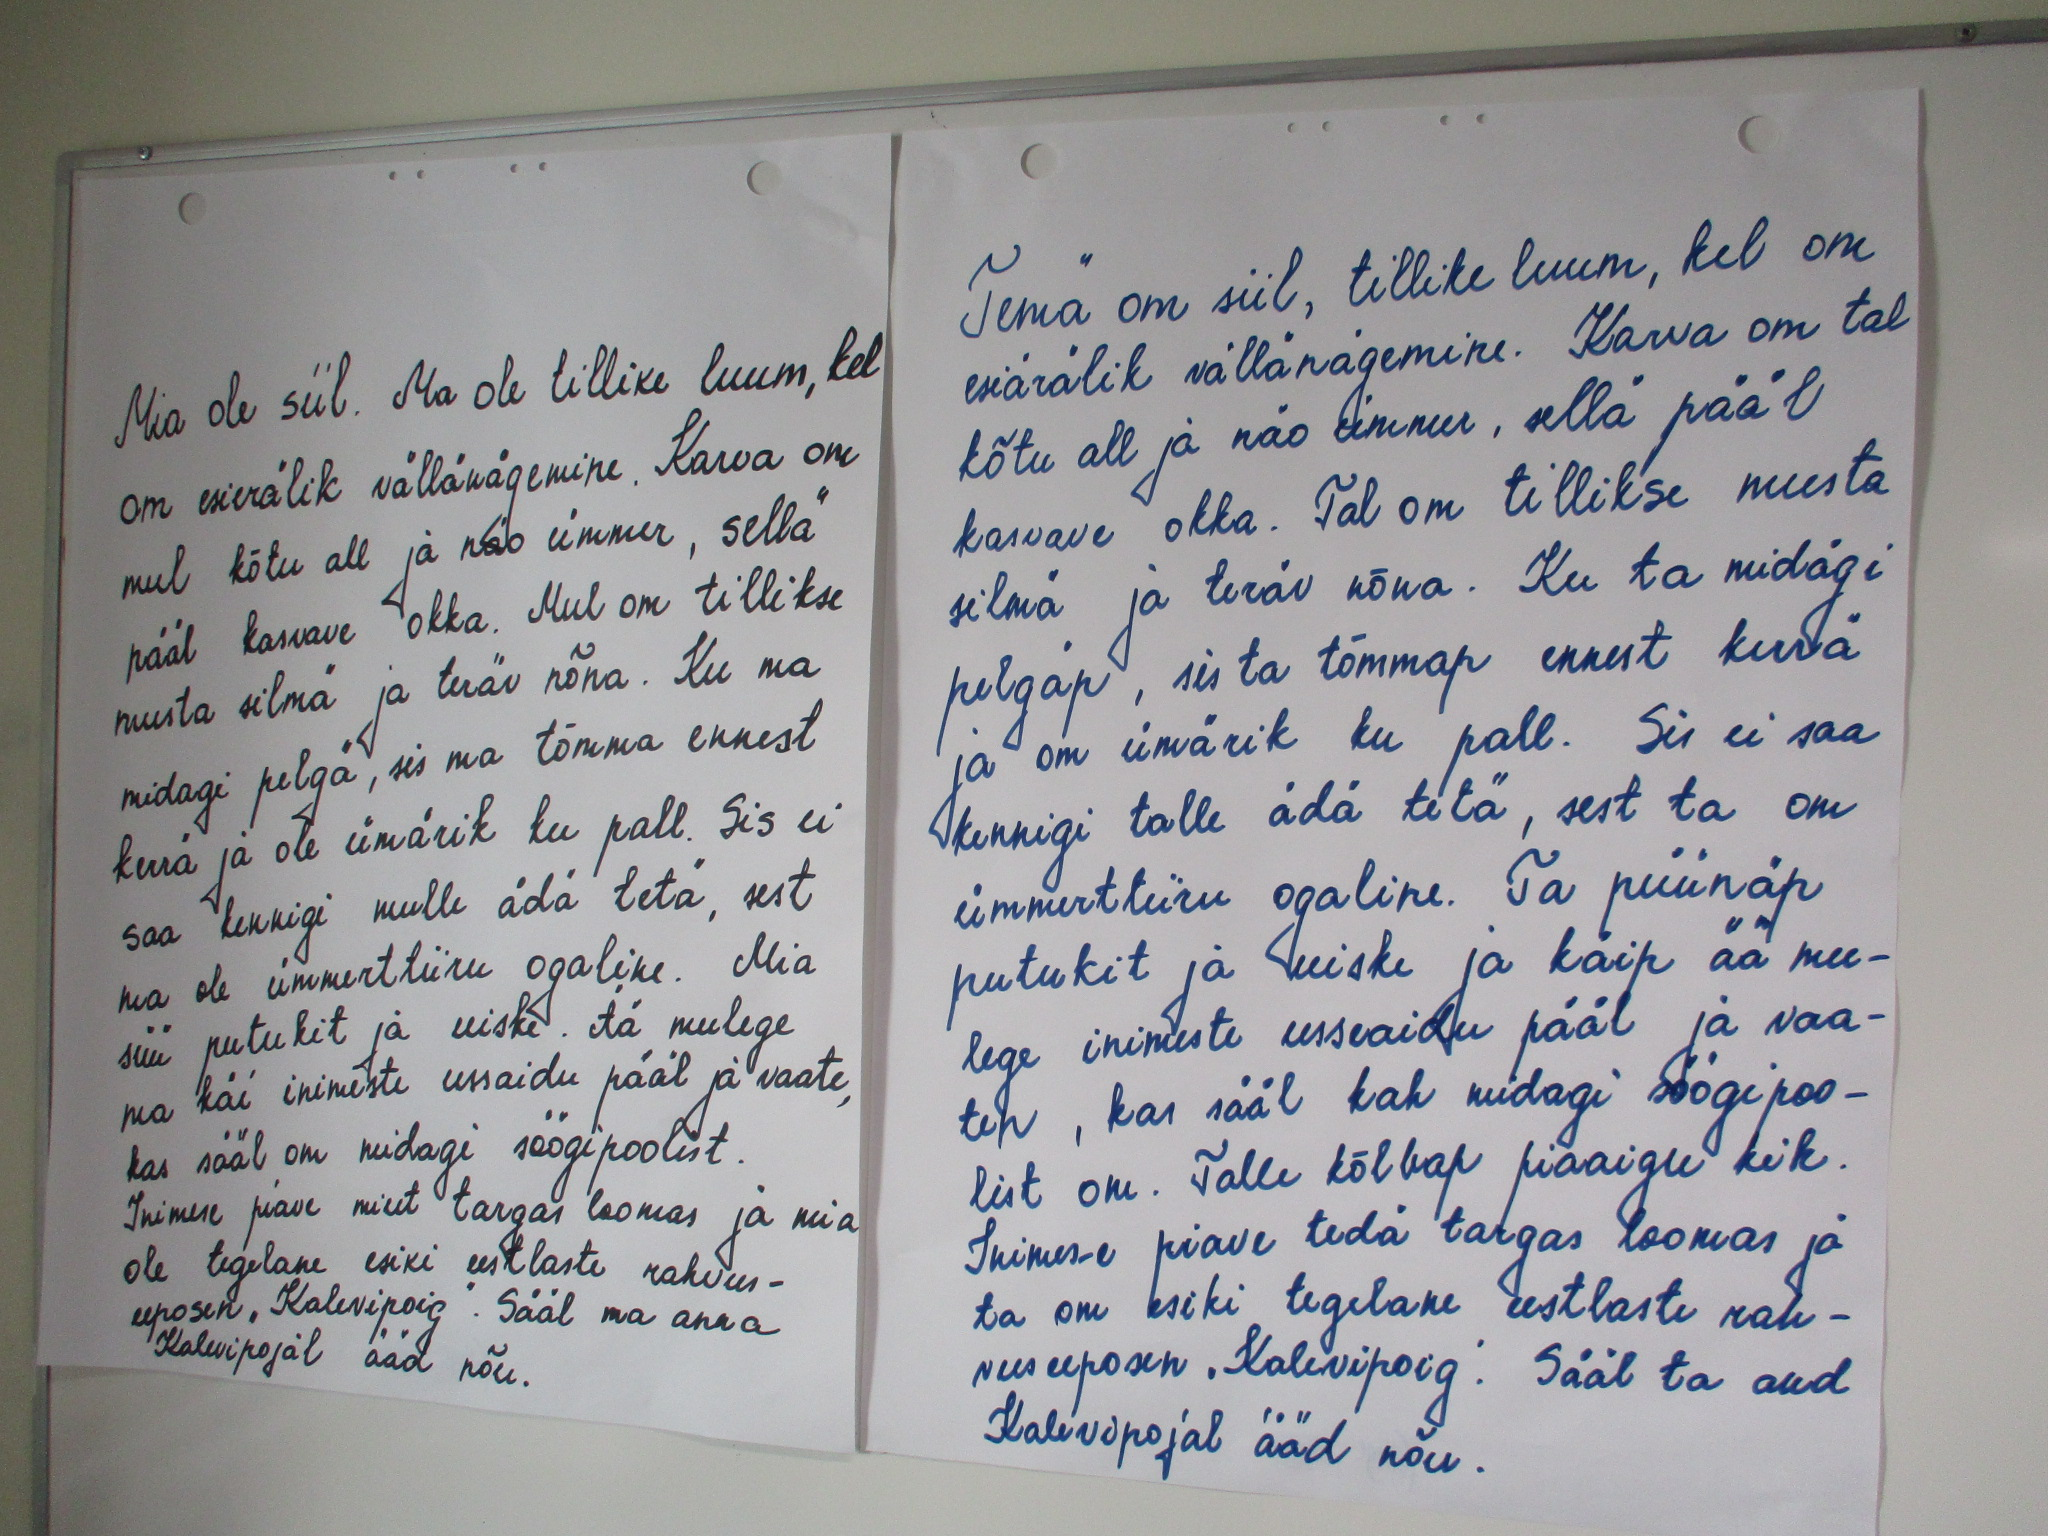 Mia ole siil. Ma ole tillike luum, kel
om esierälik vällänägemine. Karva om
mul kõtu all ja näo ümmer, sellä
pääl kasvave okka. Mul om tillikse
musta silmä ja teräv nõna. Ku ma
midagi pelgä, sis ma tõmma ennest
kerrä ja ole ümärik ku pall. Sis ei
saa kennigi mulle ädä tetä, sest
ma ole ümmerttiiru ogaline. Mia
süü putukit ja uiske. Ää mulege
ma käi inimeste ussaidu pääl ja vaate,
kas sääl om midagi söögipoolist.
Inimese piave miut targas loomas ja mia
ole tegelane esiki eestlaste rahvus-
eeposen „Kalevipoig". Sääl ma anna
Kalevipojal ääd nõu.
Temä om siil, tillike luum, kel om
esiärälik vällänägemine. Karva om tal
kõtu all ja näo ümmer, sellä pääl
kasvave okka. Tal om tillikse musta
silmä ja teräv nõna. Ku ta midägi
pelgäp, sis ta tõmmap ennest kerrä
ja om ümärik ku pall. Sis ei saa
kennigi talle ädä tetä, sest ta om
ümmerttiiru ogaline. Ta püünäp
putukit ja uiske ja käip ää mu-
lege inimeste ussaidu pääl ja vaa-
tep, kas sääl kah midagi söögipoo-
list om. Talle kõlbap piaaigu kik.
Inimese piave tedä targas loomas ja
ta om esiki tegelane eestlaste rah-
vuseeposen „Kalevipoig". Sääl ta and
Kalevipojal ääd nõu.